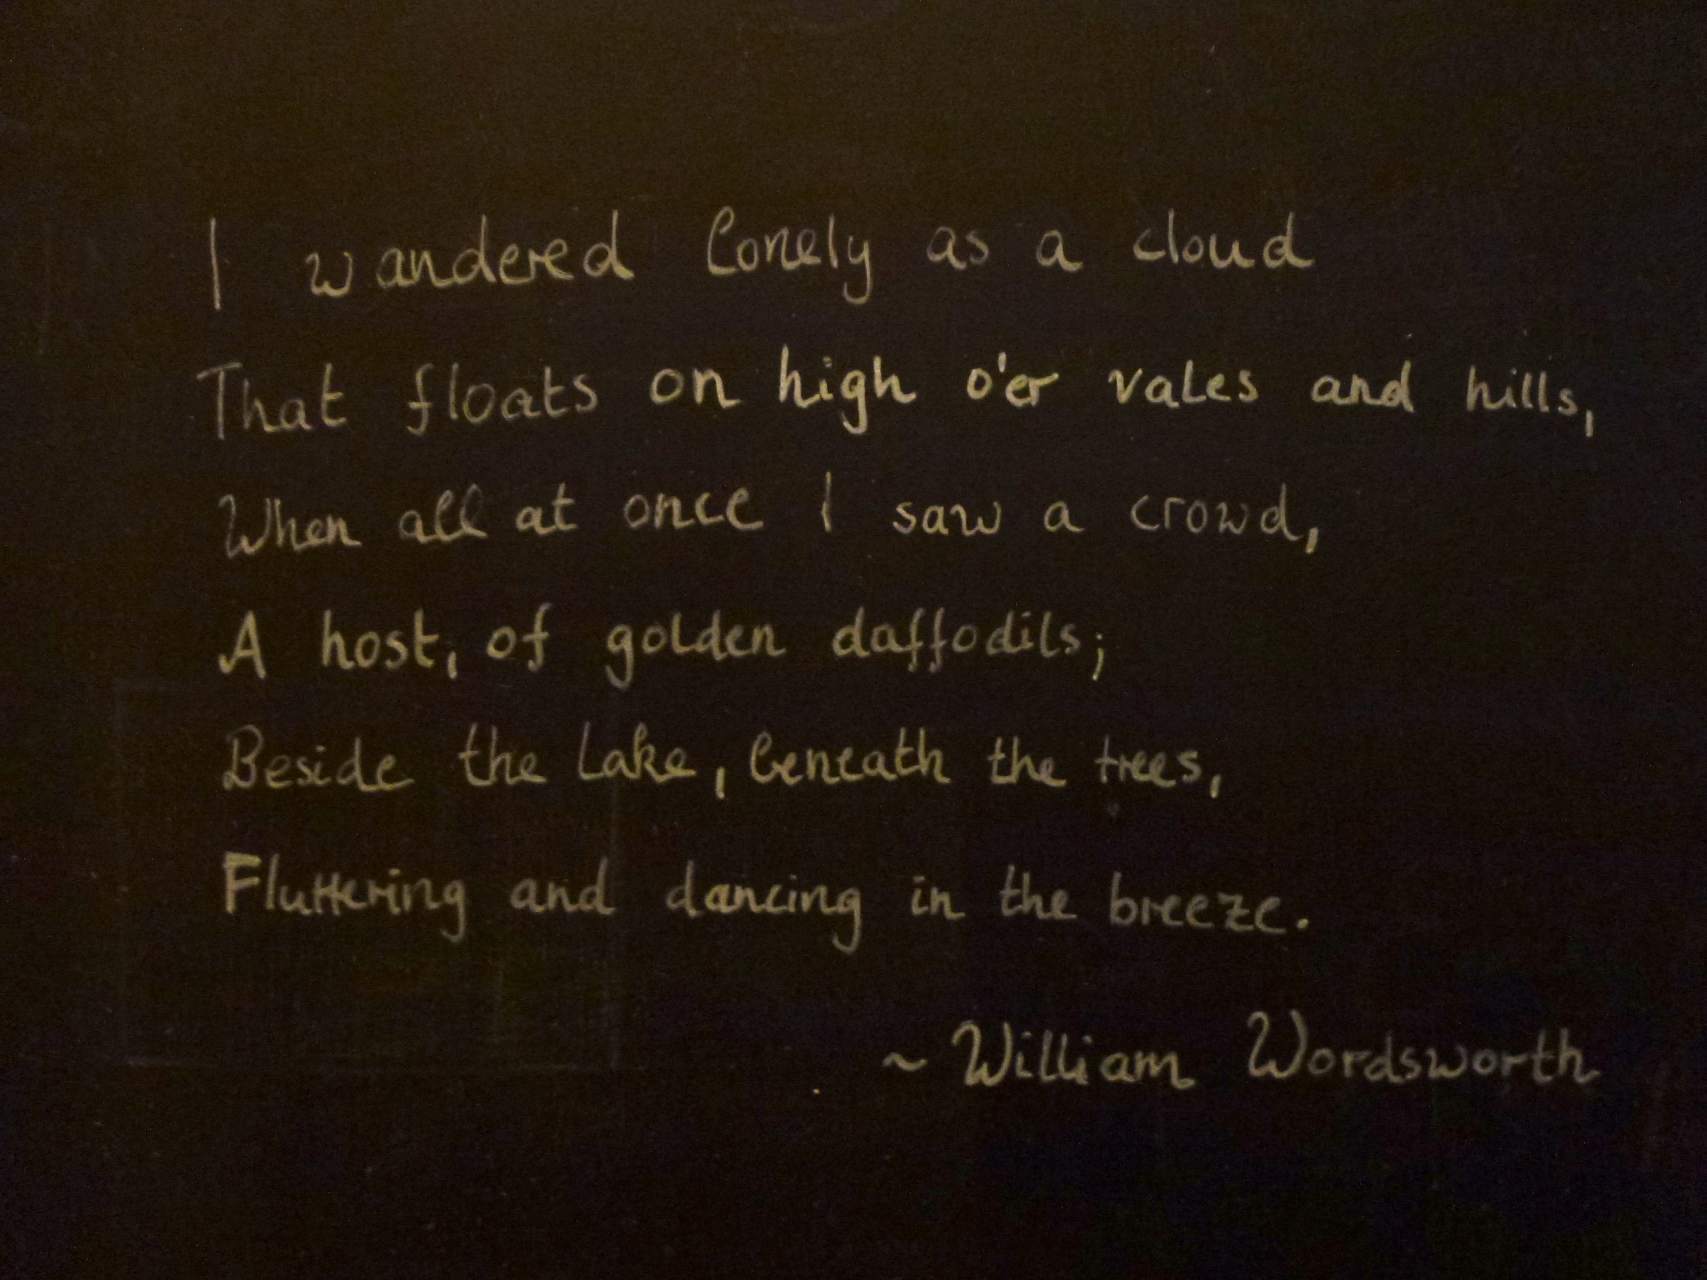 I wandered lonely as a cloud
That floats on high o'er vales and hills,
When all at once I saw a crowd,
A host, of golden daffodils;
Beside the lake, beneath the trees,
Fluttering and dancing in the breeze.
~ William Wordsworth